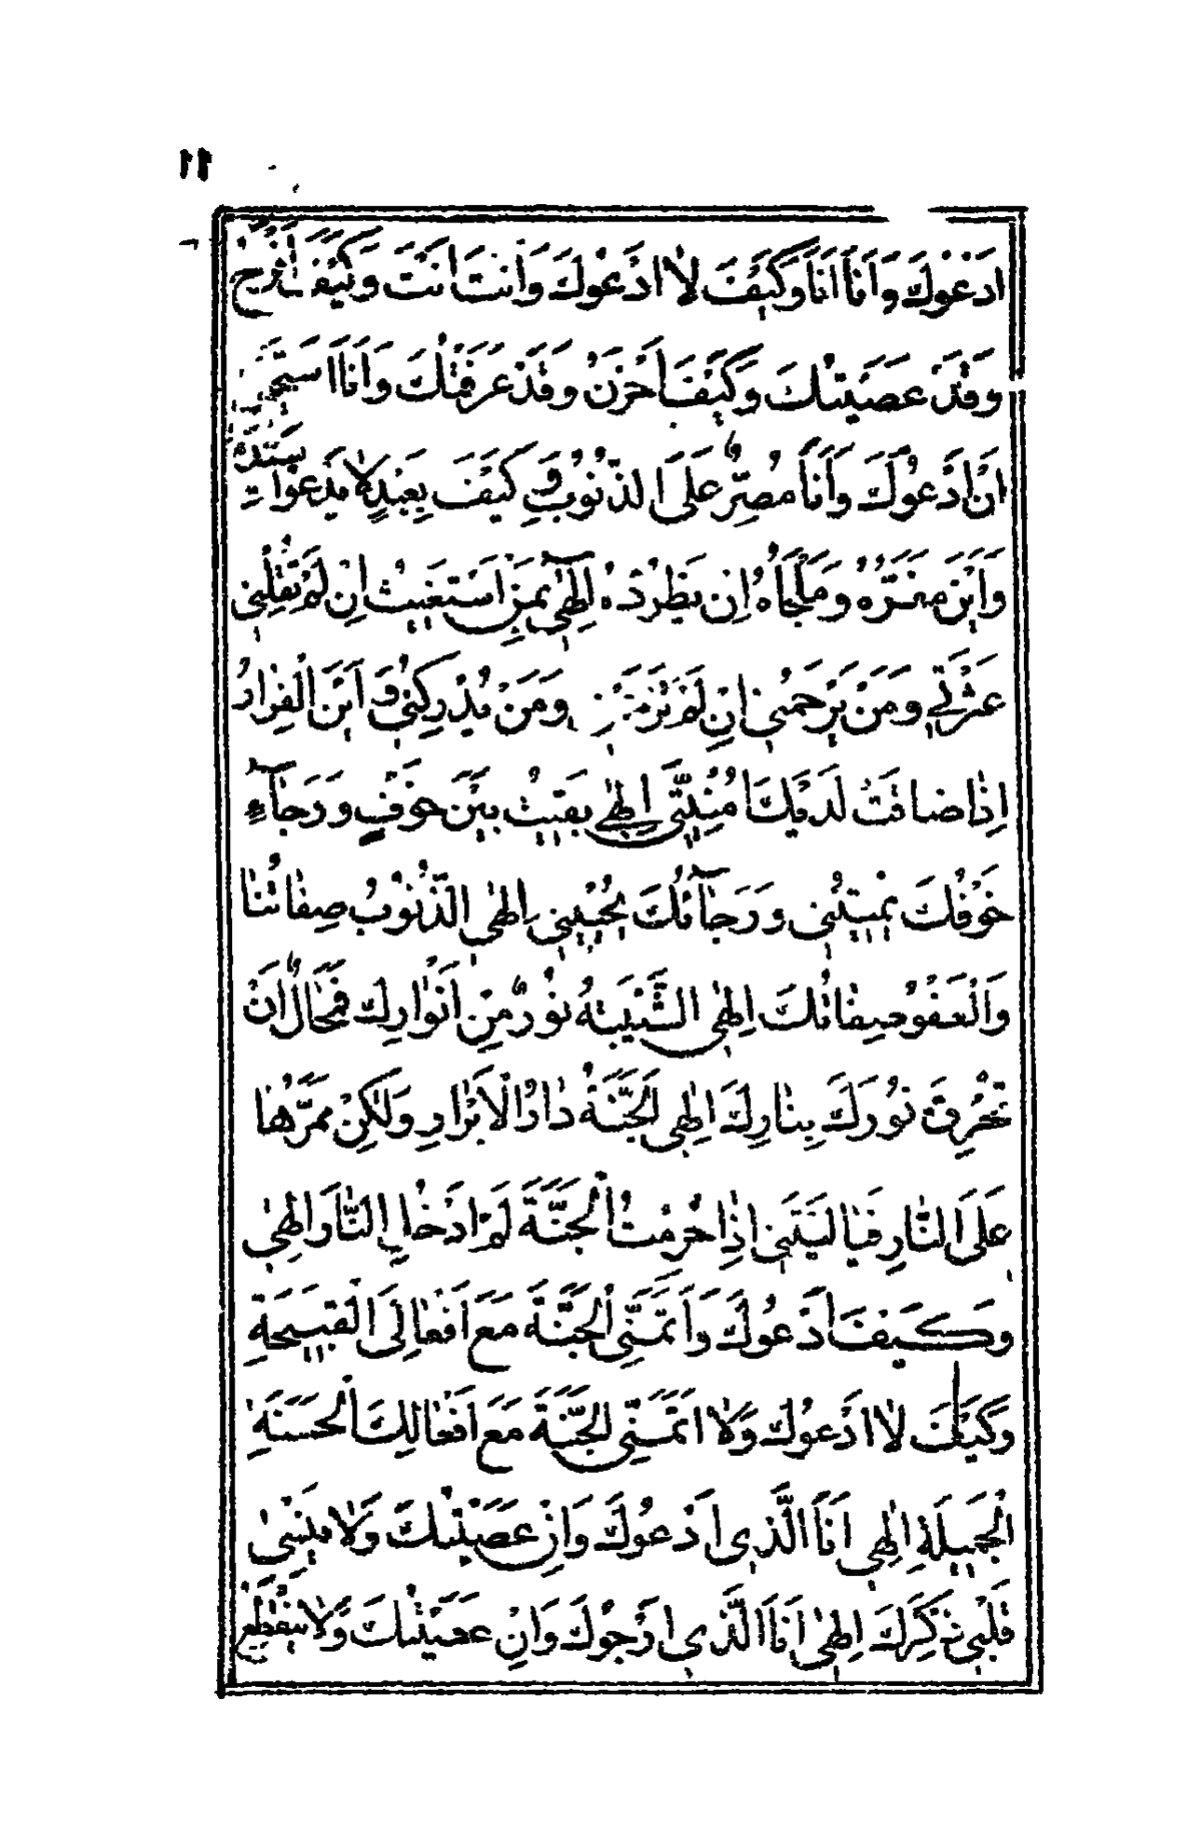 ١١
اَدْعُوْكَ وَاَنَا اَنَا وَكَيْفَ لَا اَدْعُوْكَ وَاَنْتَ اَنْتَ وَكَيْفَ اَفْرَحُ
وَقَدْ عَصَيْتُكَ وَكَيْفَ اَحْزَنُ وَقَدْ عَرَفْتُكَ وَاَنَا اَسْتَحْيِ
اَنْ اَدْعُوَكَ وَاَنَا مُصِرٌّ عَلَى الذُّنُوْبِ وَكَيْفَ بِعَبْدٍ لَا يَدْعُوْا سَيِّدَهُ
وَاَيْنَ مَفَرُّهُ وَمَلْجَاُهُ اِنْ يَطْرُدْهُ اِلٰهِيْ بِمَنْ اَسْتَغِيْثُ اِنْ لَمْ تُقِلْنِيْ
عَثْرَتِيْ وَمَنْ يَرْحَمُنِيْ اِنْ لَمْ تَرْحَمْنِيْ وَمَنْ يُدْرِكُنِيْ وَاَيْنَ الْفِرَارُ
اِذَا ضَاقَتْ لَدَيْكَ اُمْنِيَّتِيْ اِلٰهِيْ بَقِيْتُ بَيْنَ خَوْفٍ وَرَجَآءٍ
خَوْفُكَ يُمِيْتُنِيْ وَرَجَآئُكَ يُحْيِيْنِيْ اِلٰهِيْ الذُّنُوْبُ صِفَاتُنَا
وَالْعَفْوُ صِفَاتُكَ اِلٰهِيْ الشَّيْبَةُ نُوْرٌ مِنْ اَنْوَارِكَ فَمُحَالٌ اَنْ
تُحْرِقَ نُوْرَكَ بِنَارِكَ اِلٰهِيْ اَلْجَنَّةُ دَارُ الْاَبْرَارِ وَلٰكِنْ مَمَرُّهَا
عَلَى النَّارِ فَيَا لَيْتَنِيْ اِذَا حُرِمْتُ الْجَنَّةَ لَمْ اَدْخُلِ النَّارَ اِلٰهِيْ
وَكَيْفَ اَدْعُوْكَ وَاَتَمَنَّى الْجَنَّةَ مَعَ اَفْعَالِيَ الْقَبِيْحَةِ
وَكَيْفَ لَا اَدْعُوْكَ وَلَا اَتَمَنَّى الْجَنَّةَ مَعَ اَفْعَالِكَ الْحَسَنَةِ
الْجَمِيْلَةِ اِلٰهِيْ اَنَا الَّذِيْ اَدْعُوْكَ وَاِنْ عَصَيْتُكَ وَلَا يَنْسٰى
قَلْبِيْ ذِكْرَكَ اِلٰهِيْ اَنَا الَّذِيْ اَرْجُوْكَ وَاِنْ عَصَيْتُكَ وَلَا يَنْقَطِعُ